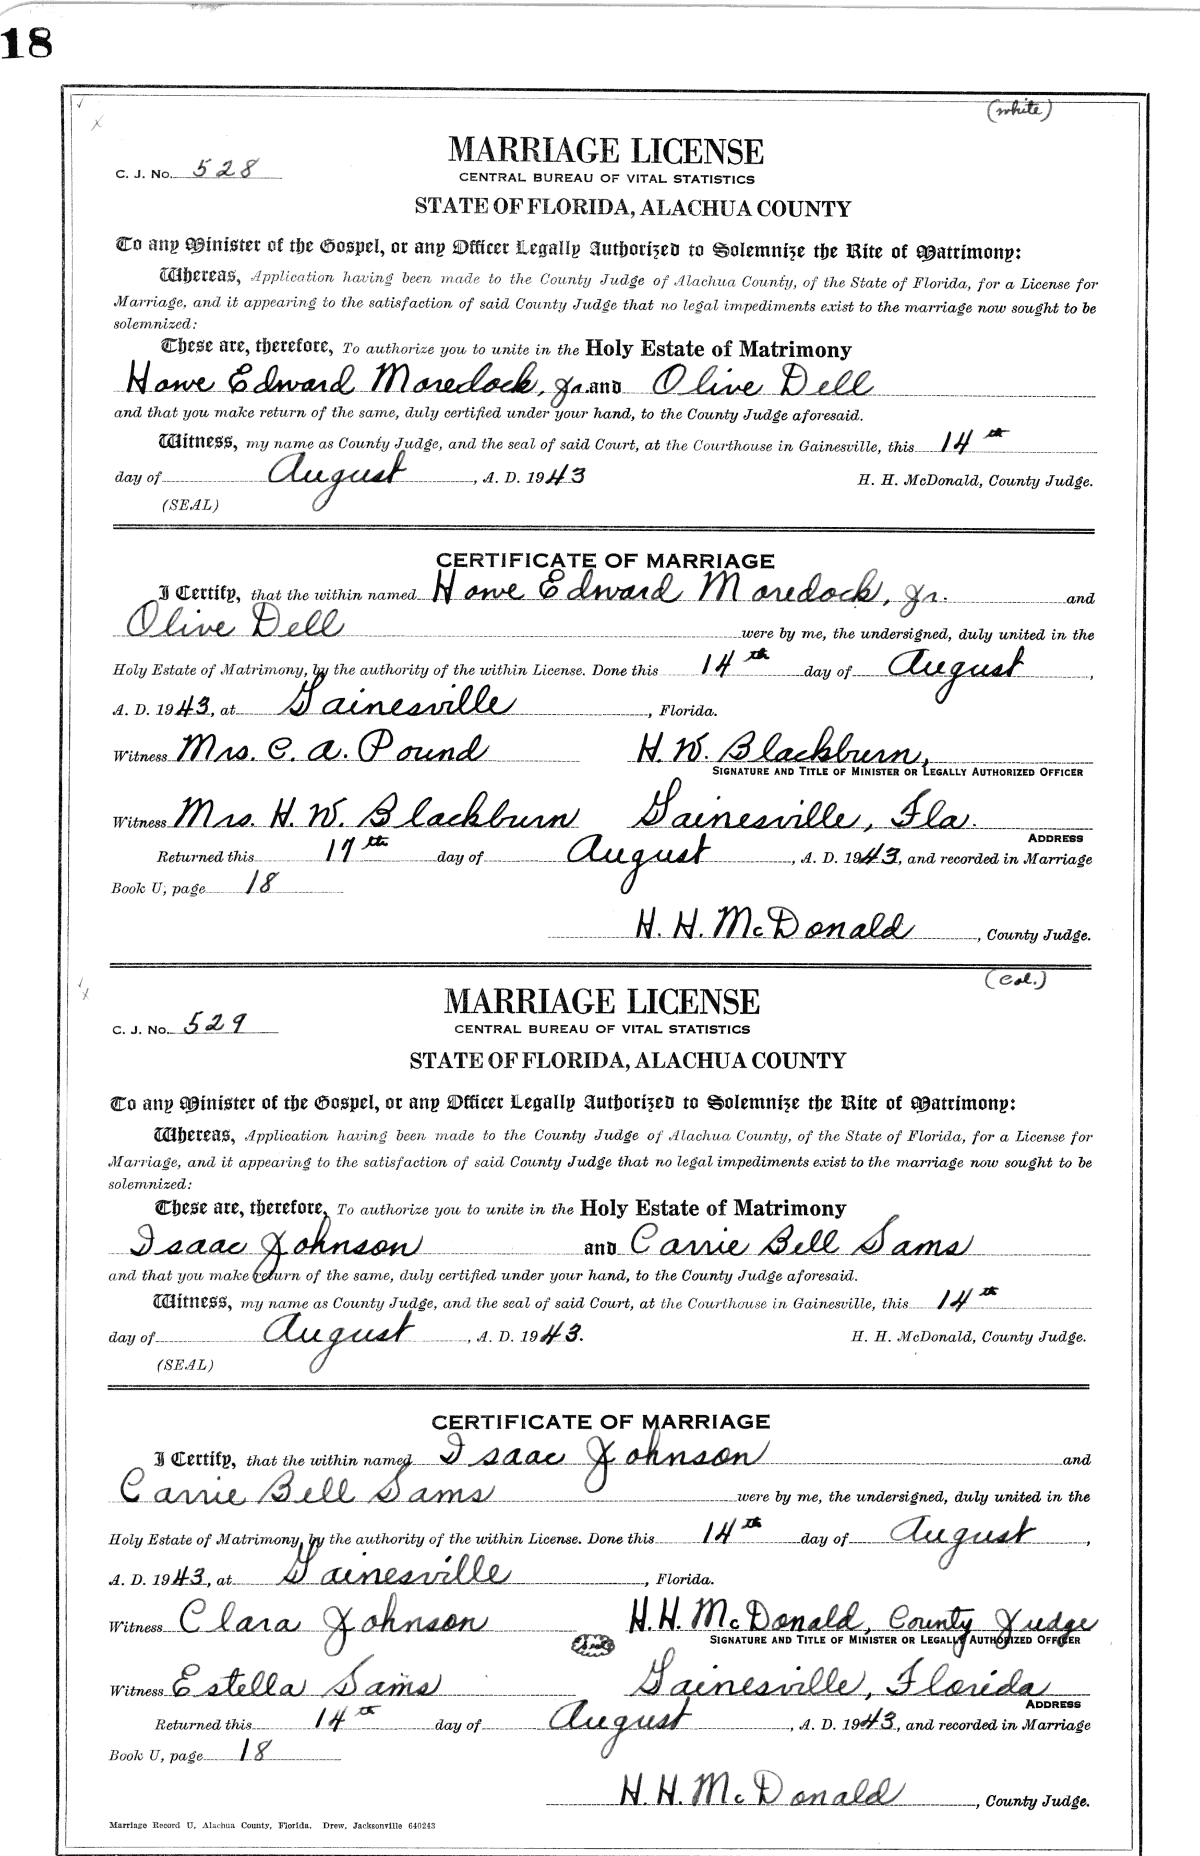 18
(white)
MARRIAGE LICENSE
C. J. No. 528
CENTRAL BUREAU OF VITAL STATISTICS
STATE OF FLORIDA, ALACHUA COUNTY
To any Minister of the Gospel, or any Officer Legally Authorized to Solemnize the Rite of Matrimony:
Whereas, Application having been made to the County Judge of Alachua County, of the State of Florida, for a License for
Marriage, and it appearing to the satisfaction of said County Judge that no legal impediments exist to the marriage now sought to be
solemnized:
These are, therefore, To authorize you to unite in the Holy Estate of Matrimony
Howe Edward Moredock, Jr. and Olive Dell
and that you make return of the same, duly certified under your hand, to the County Judge aforesaid.
Witness, my name as County Judge, and the seal of said Court, at the Courthouse in Gainesville, this 14th
day of August, A. D. 1943 H. H. McDonald, County Judge.
(SEAL)
CERTIFICATE OF MARRIAGE
I Certify, that the within named Howe Edward Moredock, Jr. and
Olive Dell were by me, the undersigned, duly united in the
Holy Estate of Matrimony, by the authority of the within License. Done this 14th day of August,
A. D. 1943, at Gainesville, Florida.
Witness Mrs. C. A. Pound H. W. Blackburn,
SIGNATURE AND TITLE OF MINISTER OR LEGALLY AUTHORIZED OFFICER
Witness Mrs. H. W. Blackburn Gainesville, Fla.
ADDRESS
Returned this 17th day of August, A. D. 1943, and recorded in Marriage
Book U, page 18
H. H. McDonald, County Judge.
(Col.)
MARRIAGE LICENSE
C. J. No. 529
CENTRAL BUREAU OF VITAL STATISTICS
STATE OF FLORIDA, ALACHUA COUNTY
To any Minister of the Gospel, or any Officer Legally Authorized to Solemnize the Rite of Matrimony:
Whereas, Application having been made to the County Judge of Alachua County, of the State of Florida, for a License for
Marriage, and it appearing to the satisfaction of said County Judge that no legal impediments exist to the marriage now sought to be
solemnized:
These are, therefore, To authorize you to unite in the Holy Estate of Matrimony
Isaac Johnson and Carrie Bell Sams
and that you make return of the same, duly certified under your hand, to the County Judge aforesaid.
Witness, my name as County Judge, and the seal of said Court, at the Courthouse in Gainesville, this 14th
day of August, A. D. 1943. H. H. McDonald, County Judge.
(SEAL)
CERTIFICATE OF MARRIAGE
I Certify, that the within named Isaac Johnson and
Carrie Bell Sams were by me, the undersigned, duly united in the
Holy Estate of Matrimony, by the authority of the within License. Done this 14th day of August,
A. D. 1943, at Gainesville, Florida.
Witness Clara Johnson H. H. McDonald, County Judge
Seal SIGNATURE AND TITLE OF MINISTER OR LEGALLY AUTHORIZED OFFICER
Witness Estella Sams Gainesville, Florida
ADDRESS
Returned this 14th day of August, A. D. 1943, and recorded in Marriage
Book U, page 18
H. H. McDonald, County Judge.
Marriage Record U, Alachua County, Florida. Drew, Jacksonville 640243